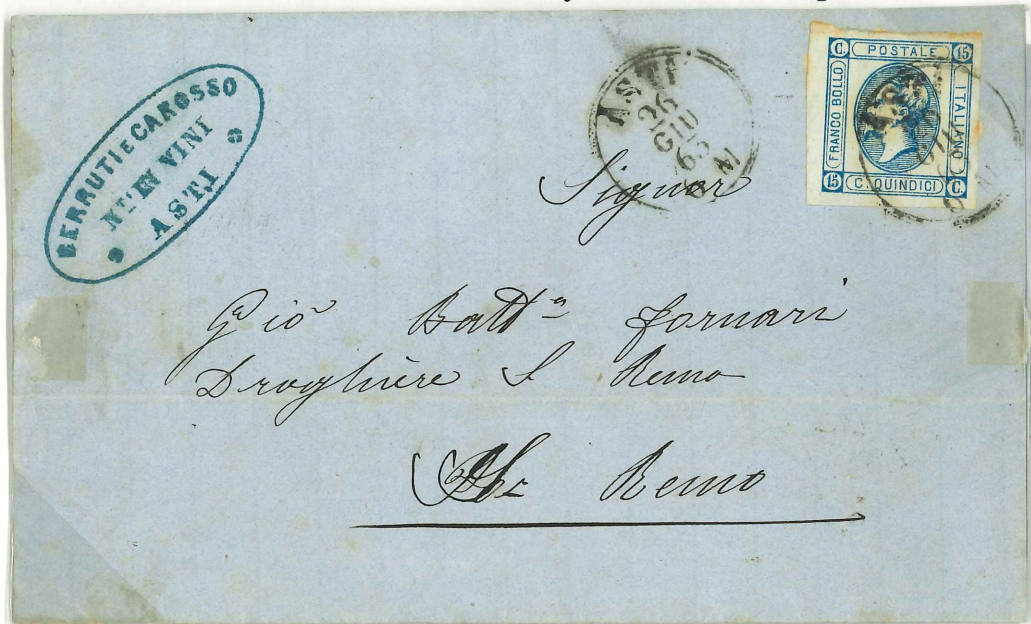 BERRUTI E CAROSSO
IN VINI
ASTI
ASTI
26
GIU
63
C. POSTALE 15
FRANCO BOLLO
ITALIANO
15 C. QUINDICI C.
Signor
Gio Batta Fornari
Droghiere S Remo
Remo